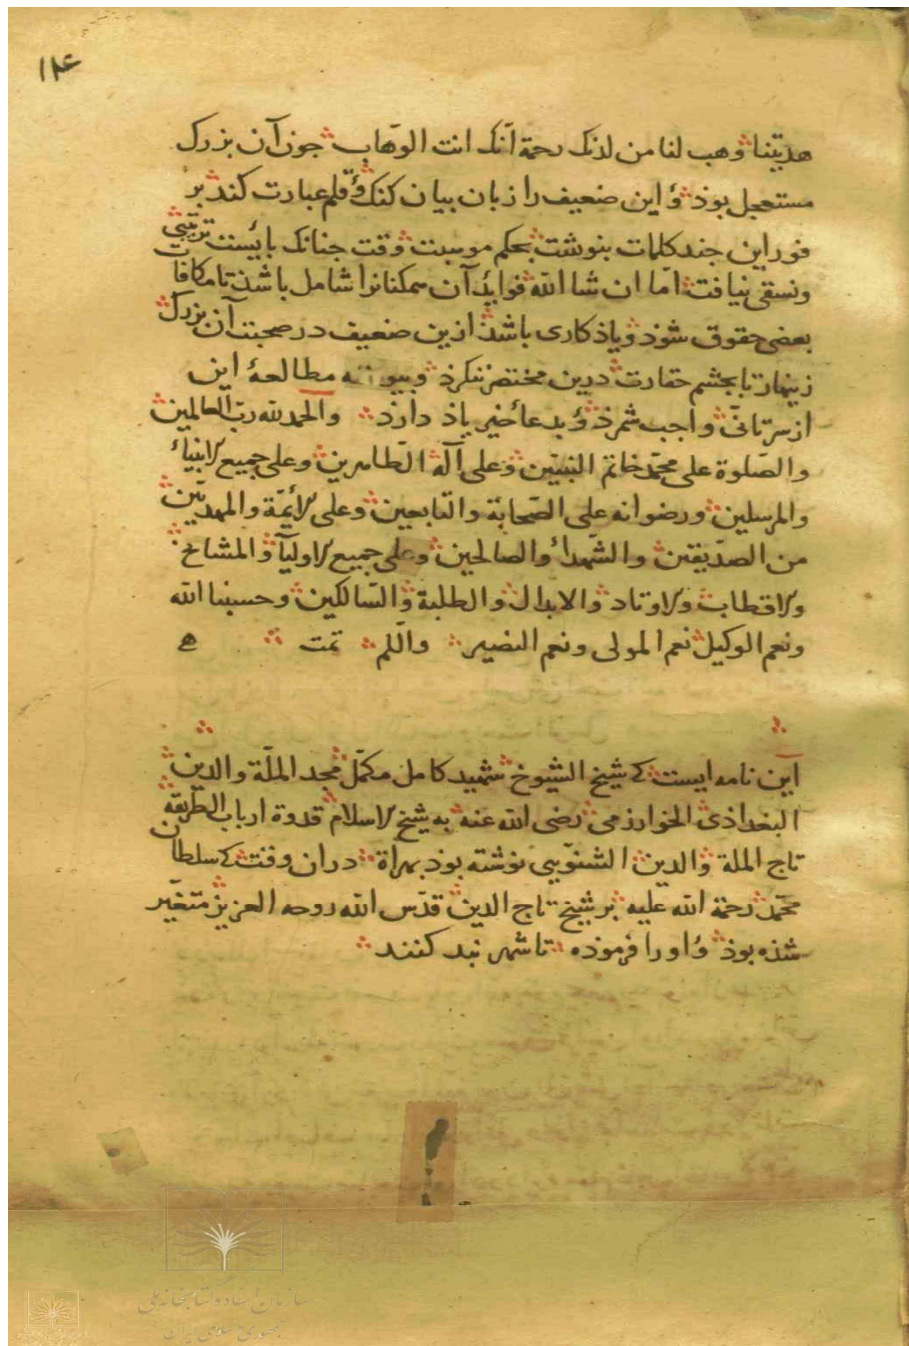 ۱۴۶
هدیتنا وهب لنا من لدنک رحمة انّک انت الوهّاب جون آن بزرک
مستعجل بوذ و این ضعیف را زبان بیان کنک و قلم عبارت کند بر
فور این جند کلمات بنوشت بحکم وقت جنانک بایست ترتیبی
ونسقی نیافت امّا ان شا الله فواید آن همکنانرا شامل باشذ تا مکافات
بعضی حقوق شوذ و یاذکاری باشذ ازین ضعیف در صحبت آن بزرک
زینهار تا بجشم حقارت درین مختصر ننکرذ مطالعهٔ این
از سر تانّی واجب شمرذ و بدعاٴ خیر یاذ دارذ والحمد لله ربّ العالمین
والصّلوة علی محمّد خاتم النبیّین وعلی آله الطّاهرین وعلی جمیع الانبیاٴ
والمرسلین ورضوانه علی الصّحابة والتابعین وعلی الائمّة والمهدیّین
من الصدّیقین والشّهداٴ والصالحین وعلی جمیع الاولیآ والمشایخ
والاقطاب والاوتاد والابدال والطلبة والسّالکین وحسبنا الله
ونعم الوکیل نعم المولی ونعم النصیر والّلم تمت ه
این نامه ایست که شیخ الشیوخ شهید کامل مکمّل مجد الملّة والدین
البغداذی الخوارزمی رضی الله عنه به شیخ الاسلام قدوة ارباب الطریقة
تاج الملة والدین الشنوّیی نوشته بوذ بهراة دران وقت که سلطان
محمّد رحمة الله علیه بر شیخ تاج الدین قدّس الله روحه العزیز متغیّر
شذه بوذ و او را فرموذه تا شهر نبد کنند
سازمان اسناد و کتابخانه ملی
جمهوری اسلامی ایران